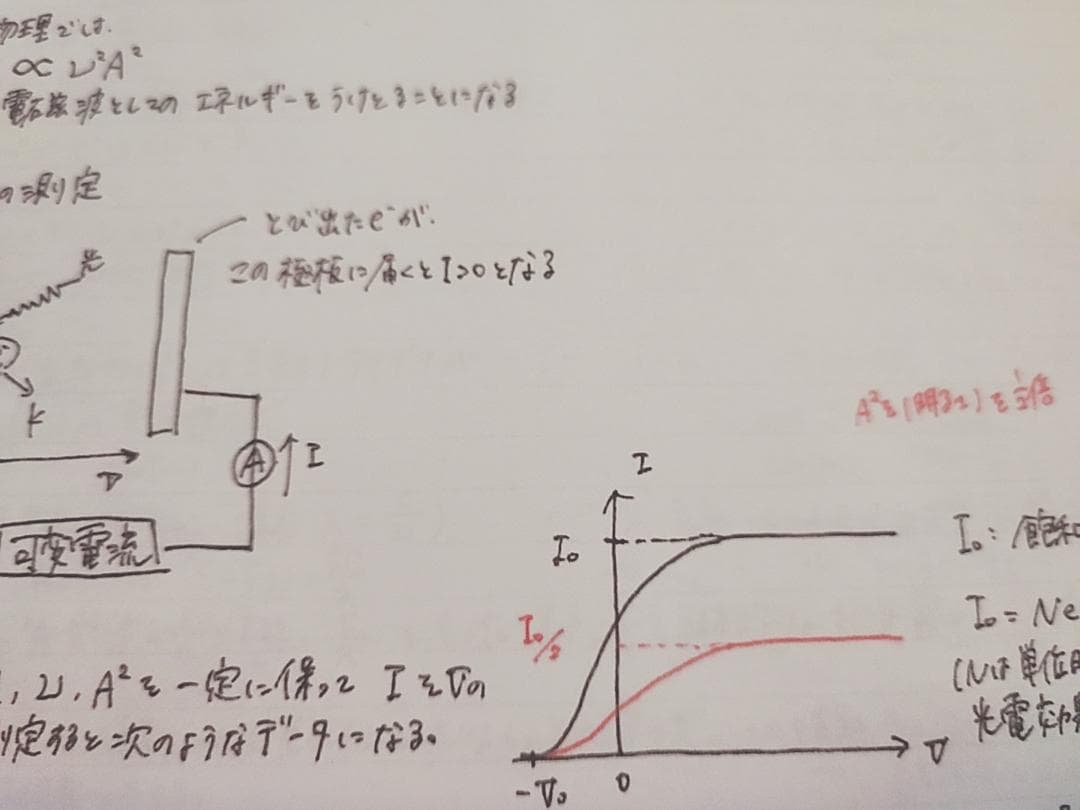 物理では.
∝ ν²A²
電磁波としてのエネルギーをうけとることになる
の測定
光
とび出たe⁻が.
この極板に届くと I>0 となる
K
V
A
I
可変電流
, ν, A² を一定に保って I を V の
定すると次のようなデータになる。
A²を(明るさ)を½倍
I
I₀
I₀/2
-V₀
0
V
I₀: 飽和
I₀ = Ne
(Nは単位時
光電効果